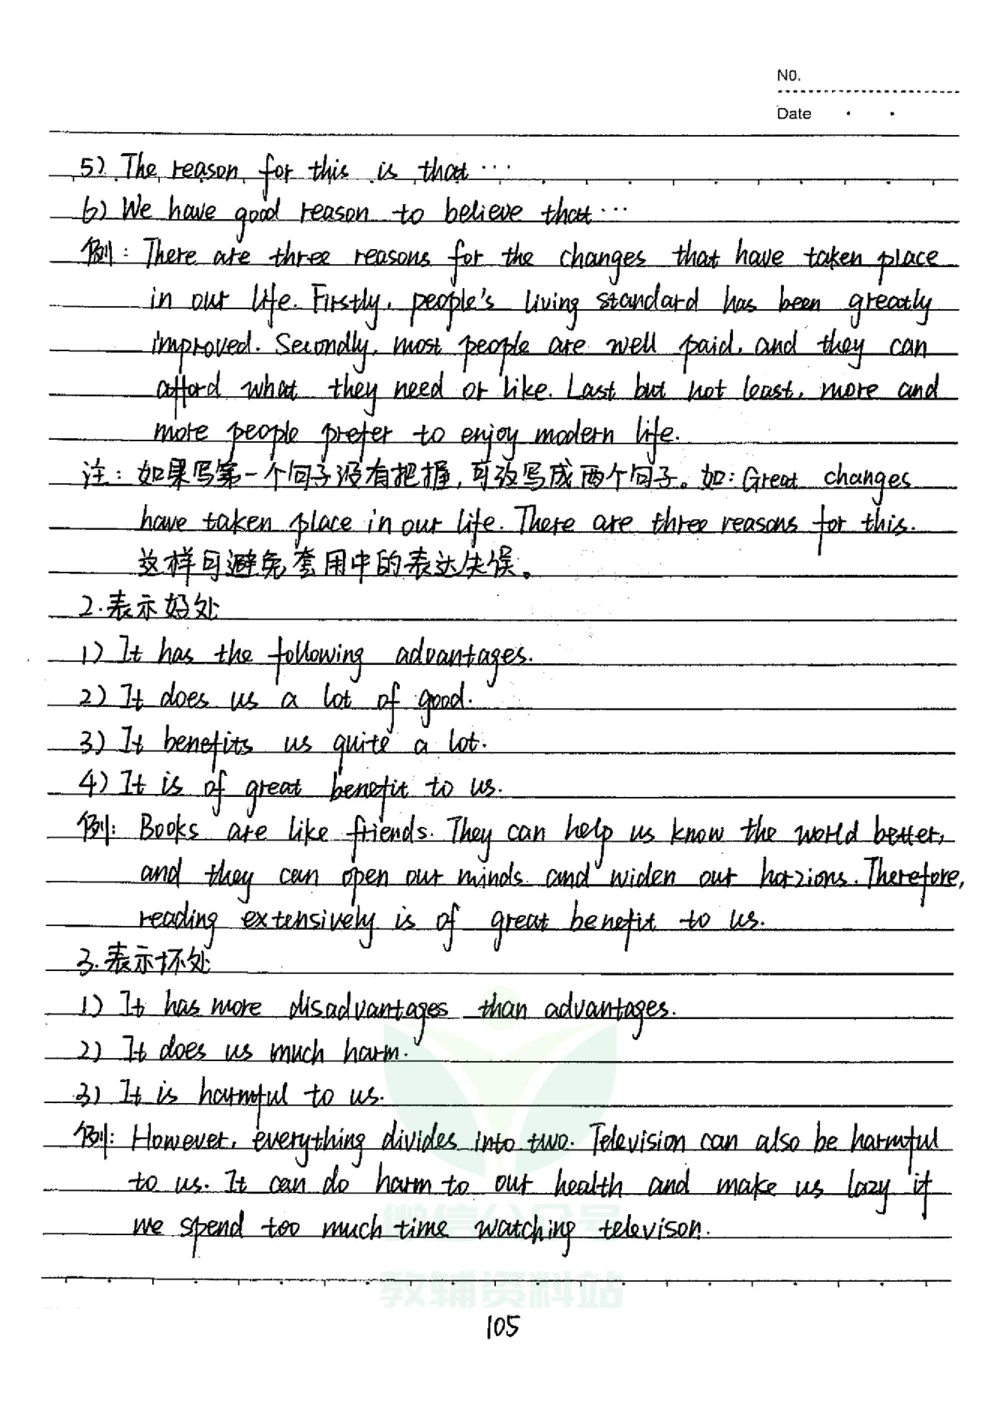 NO.
Date
5) The reason for this is that …
6) We have good reason to believe that …
例: There are three reasons for the changes that have taken place
in our life. Firstly, people's living standard has been greatly
improved. Secondly, most people are well paid, and they can
afford what they need or like. Last but not least, more and
more people prefer to enjoy modern life.
注: 如果写第一个句子没有把握, 可改写成两个句子。如: Great changes
have taken place in our life. There are three reasons for this.
这样可避免套用中的表达失误。
2.表示好处
1) It has the following advantages.
2) It does us a lot of good.
3) It benefits us quite a lot.
4) It is of great benefit to us.
例: Books are like friends. They can help us know the world better,
and they can open our minds and widen our horzions. Therefore,
reading extensively is of great benefit to us.
3.表示坏处
1) It has more disadvantages than advantages.
2) It does us much harm.
3) It is harmful to us.
例: However, everything divides into two. Television can also be harmful
to us. It can do harm to our health and make us lazy if
we spend too much time watching televison.
微信公众号
教辅资料站
105